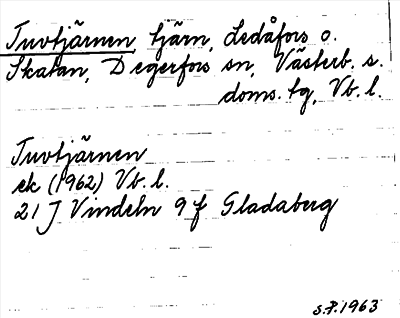 Tuvtjärnen, tjärn, Ledåfors o.
Skatan, Degerfors sn, Västerb. s.
doms. tg, Vb. l.
Tuvtjärnen
ek (1962) Vb. l.
21 J Vindeln 9 f Gladaberg
S.P. 1963